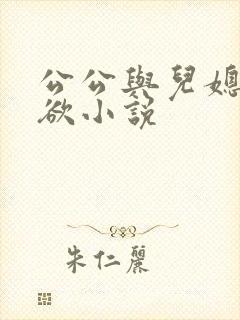 公公與兒媳
欲小說
朱仁麗